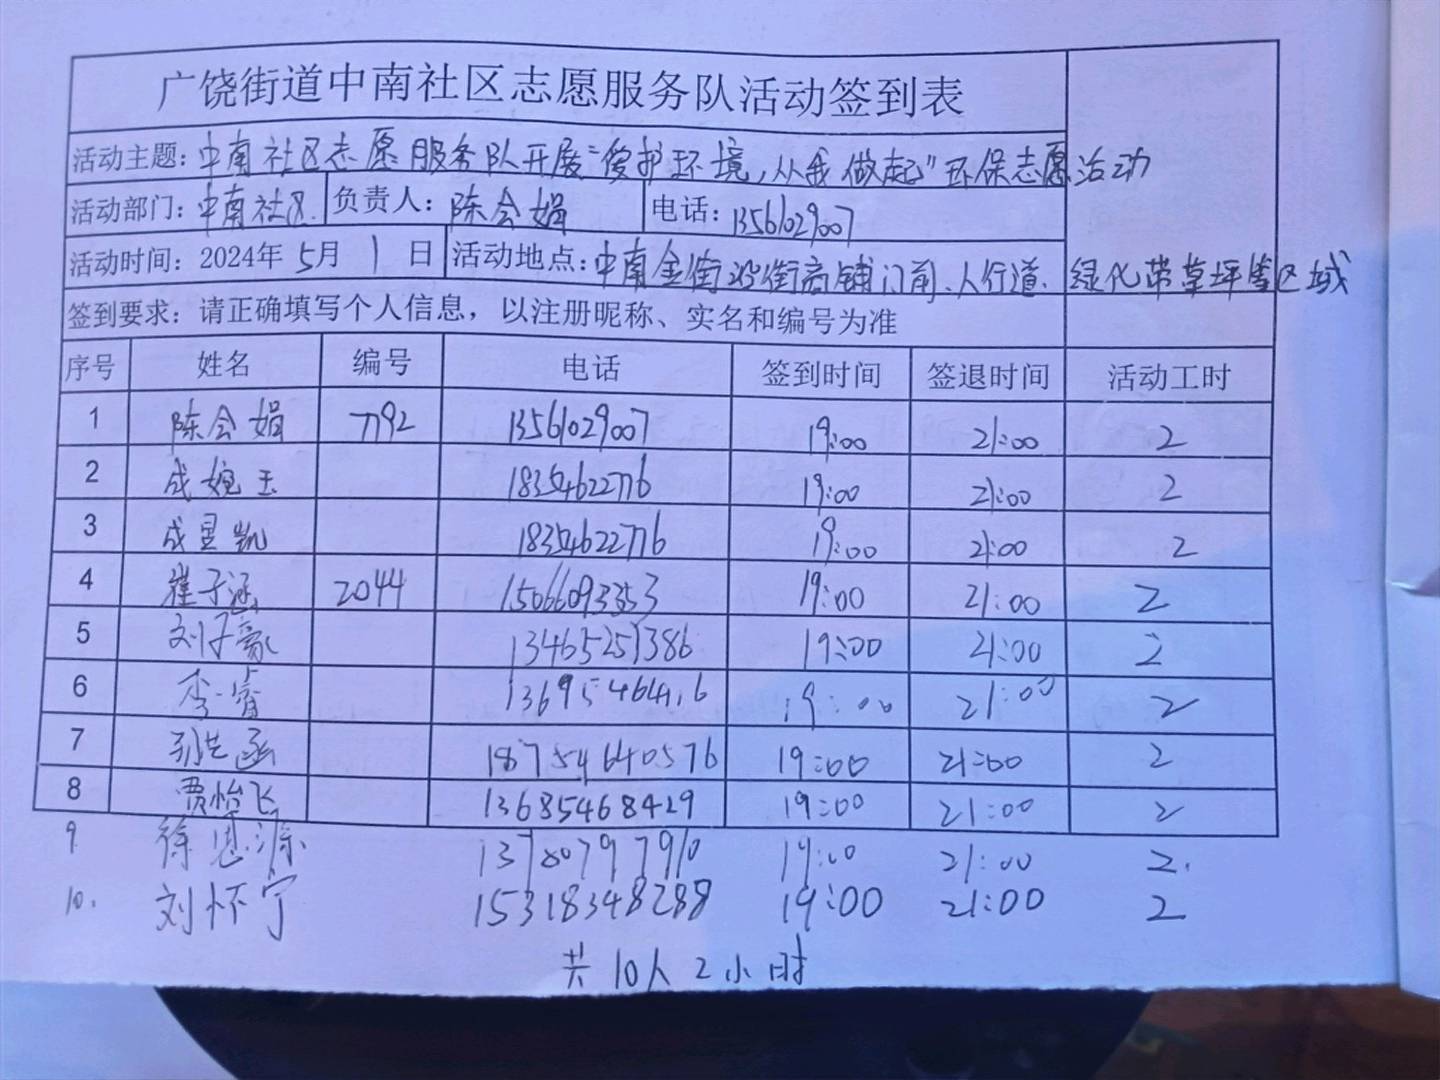 广饶街道中南社区志愿服务队活动签到表
活动主题：中南社区志愿服务队开展“爱护环境，从我做起”环保志愿活动
活动部门：中南社区. 负责人：陈会娟 电话：13561029007
活动时间：2024年5月1日 活动地点：中南金街沿街商铺门前、人行道、绿化带草坪等区域
签到要求：请正确填写个人信息，以注册昵称、实名和编号为准
序号 姓名 编号 电话 签到时间 签退时间 活动工时
1 陈会娟 7792 13561029007 19:00 21:00 2
2 成婉玉 18354622776 19:00 21:00 2
3 成昱凯 18354622776 19:00 21:00 2
4 崔子涵 2044 15066093353 19:00 21:00 2
5 刘子豪 13465251386 19:00 21:00 2
6 李睿 19:00 21:00 2
7 函 18754640576 19:00 21:00 2
8 贾怡飞 13685468429 19:00 21:00 2
9. 徐思源 13780797910 19:00 21:00 2.
10. 刘怀宁 15318348288 19:00 21:00 2
共10人2小时